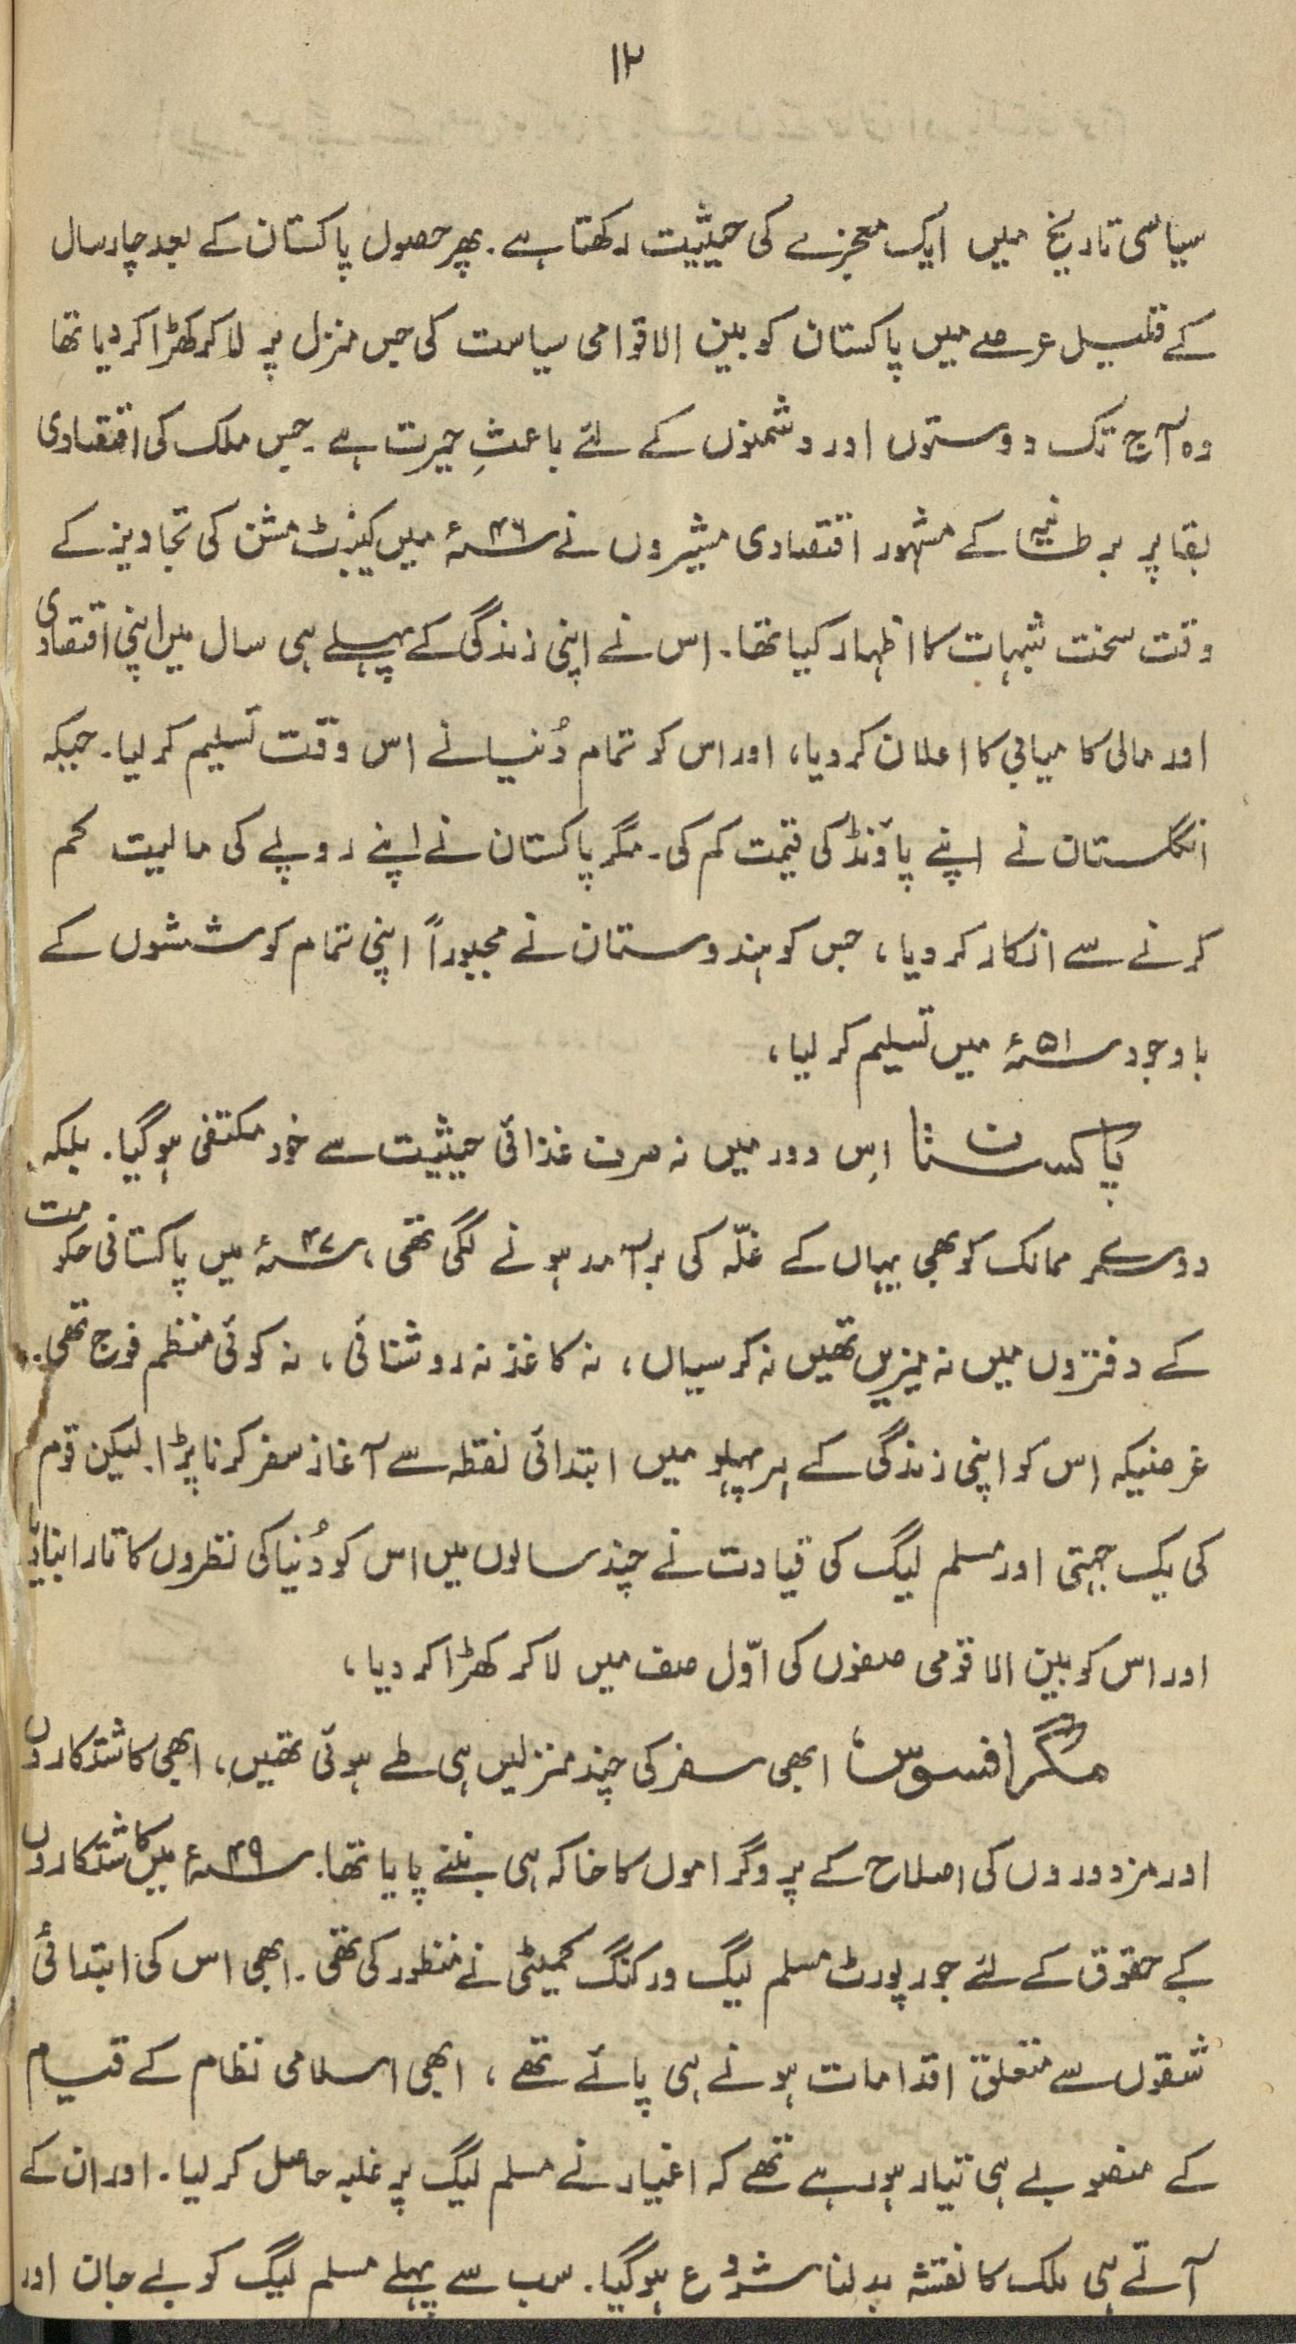 ۱۲
سیاسی تاریخ میں ایک معجزے کی حیثیت رکھتا ہے۔ پھر حصول پاکستان کے بعد چار سال
کے قلیل عرصے میں پاکستان کو بین الاقوامی سیاست کی جس منزل پر لا کر کھڑا کر دیا تھا
وہ آج تک دوستوں اور دشمنوں کے لئے باعثِ حیرت ہے۔ جس ملک کی اقتصادی
بقا پر برطانیہ کے مشہور اقتصادی مشیروں نے ۴۶ء میں کیبنٹ مشن کی تجاویز کے
وقت سخت شبہات کا اظہار کیا تھا۔ اس نے اپنی زندگی کے پہلے ہی سال میں اپنی اقتصادی
اور مالی کامیابی کا اعلان کر دیا، اور اس کو تمام دُنیا نے اس وقت تسلیم کر لیا۔ جبکہ
انگلستان نے اپنے پاؤنڈ کی قیمت کم کی۔ مگر پاکستان نے اپنے روپے کی مالیت کم
کرنے سے انکار کر دیا، جس کو ہندوستان نے مجبوراً اپنی تمام کوششوں کے
باوجود ۵۱ء میں تسلیم کر لیا،
پاکستان اِس دور میں نہ صرف غذائی حیثیت سے خود مکتفی ہو گیا۔ بلکہ
دوسرے ممالک کو بھی یہاں کے غلّہ کی برآمد ہونے لگی تھی، ۴۷ء میں پاکستانی حکومت
کے دفتروں میں نہ میزیں تھیں نہ کرسیاں، نہ کاغذ نہ روشنائی، نہ کوئی منظم فوج تھی۔
غرضیکہ اس کو اپنی زندگی کے ہر پہلو میں ابتدائی نقطہ سے آغاز سفر کرنا پڑا۔ لیکن قوم
کی یک جہتی اور مسلم لیگ کی قیادت نے چند سالوں میں اس کو دُنیا کی نظروں کا تارا بنا دیا
اور اس کو بین الاقومی صفوں کی اوّل صف میں لا کر کھڑا کر دیا،
مگر افسوس! ابھی سفر کی چند منزلیں ہی طے ہوئی تھیں، ابھی کاشتکاروں
اور مزدوروں کی اصلاح کے پروگراموں کا خاکہ ہی بننے پایا تھا۔ ۴۹ء میں کاشتکاروں
کے حقوق کے لئے جو رپورٹ مسلم لیگ ورکنگ کمیٹی نے منظور کی تھی۔ ابھی اس کی ابتدائی
شقوں سے متعلق اقدامات ہونے ہی پائے تھے، ابھی اسلامی نظام کے قیام
کے منصوبے ہی تیار ہو رہے تھے کہ اغیار نے مسلم لیگ پر غلبہ حاصل کر لیا۔ اور ان کے
آتے ہی ملک کا نقشہ بدلنا شروع ہو گیا۔ سب سے پہلے مسلم لیگ کو بے جان اور